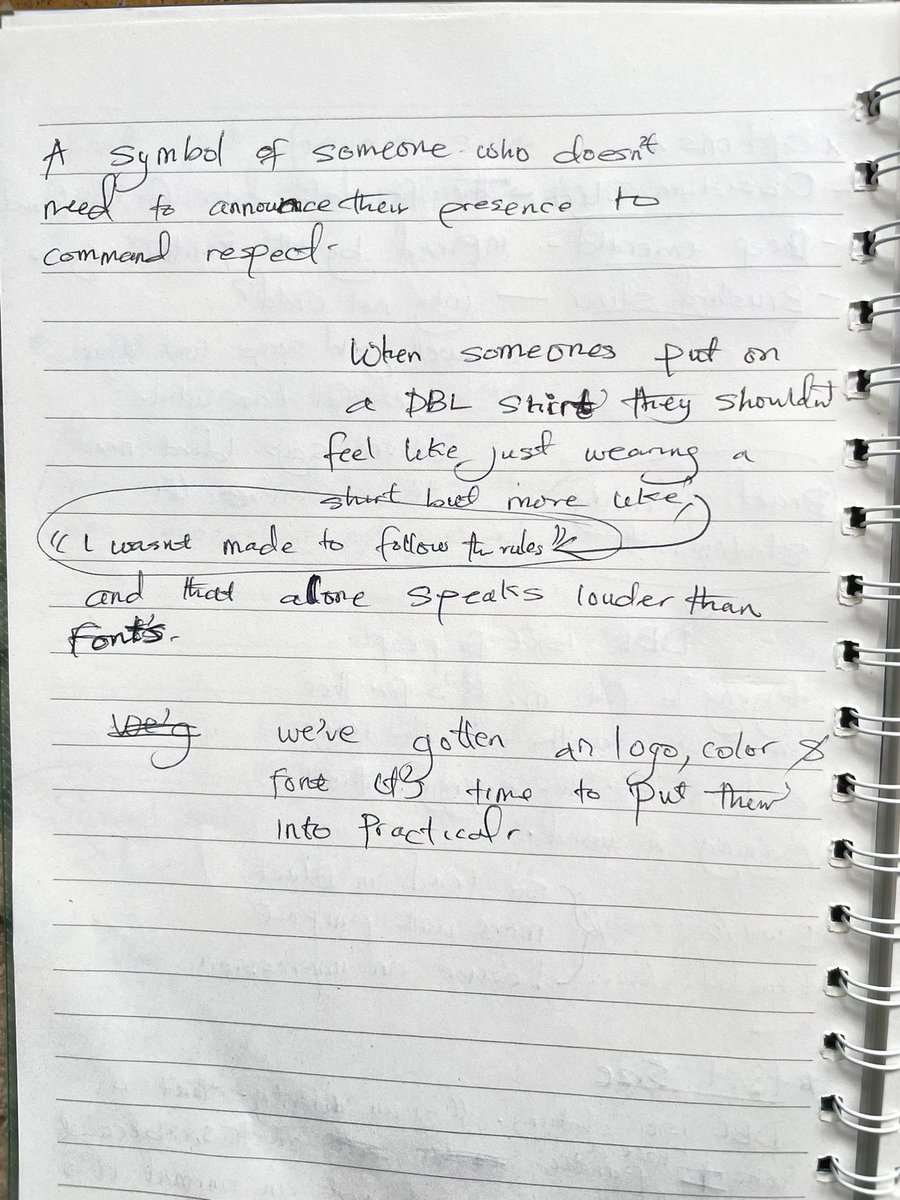 A symbol of someone who doesn't
need to announce their presence to
command respect.
When someones put on
a DBL shirt they shouldn't
feel like just wearing a
shirt but more like,
"I wasn't made to follow the rules"
and that alone speaks louder than
fonts.
we'g we've gotten an logo, color &
font it's time to put them
into Practical.